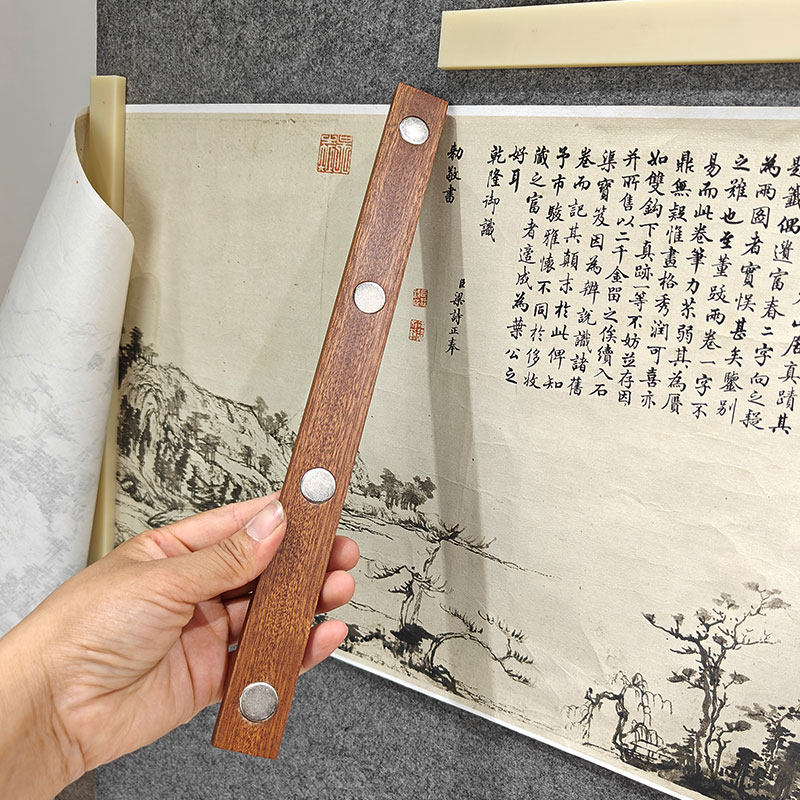 山居真蹟其
是籤偶遺富春二字向之疑
為兩圖者實悞甚矣鑒別
之難也至董跋兩卷一字不
易而此卷筆力苶弱其為贗
鼎無疑惟畫格秀潤可喜亦
如雙鈎下真跡一等不妨並存因
并所售以二千金留之俟續入石
渠寶笈因為辨說識諸舊
卷而記其顛末於此俾知
予市駿雅懷不同於侈收
藏之富者適成為葉公之
好耳
乾隆御識
臣梁詩正奉
勅敬書